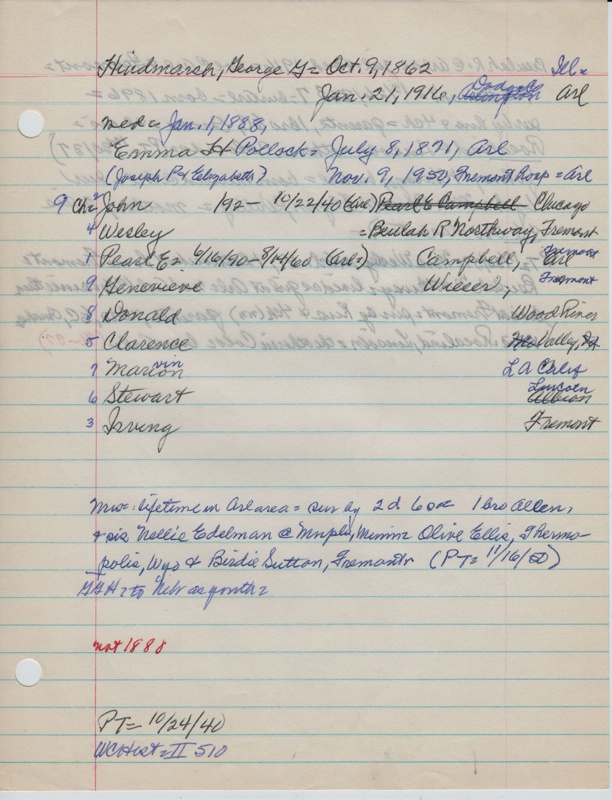 Hindmarsh, George G= Oct. 9, 1862 Ill=
Jan. 21, 1916, Arlington Dodge Co Arl
med= Jan. 1, 1888,
Emma H Pollock= July 8, 1871, Arl
(Joseph P & Elizabeth) Nov. 9, 1950, Fremont hosp = Arl
9 Ch= 2 John 192- 10/22/40 (Arl) Pearl E Campbell Chicago
4 Wesley =Beulah R Northway, Fremont
1 Pearl E= 6/16/90-8/14/60 (Arl=) Campbell, Arl Fremont
9 Genevieve Wieser, Fremont
8 Donald Wood River
5 Clarence Valley,
7 Marvin L A Calif
6 Stewart Albion Lincoln
3 Irving Fremont
Mrs= lifetime in Arl area= sur by 2 d 6 so 1 bro Allen,
& sis Nellie Edelman @ Mnpls, Minn= Olive Ellis, Thermo-
polis, Wyo & Birdie Sutton, Fremont (PT= 11/16/50)
GGH= to Nebr as youth=
not 1888
PT= 10/24/40
WCHist= II 510